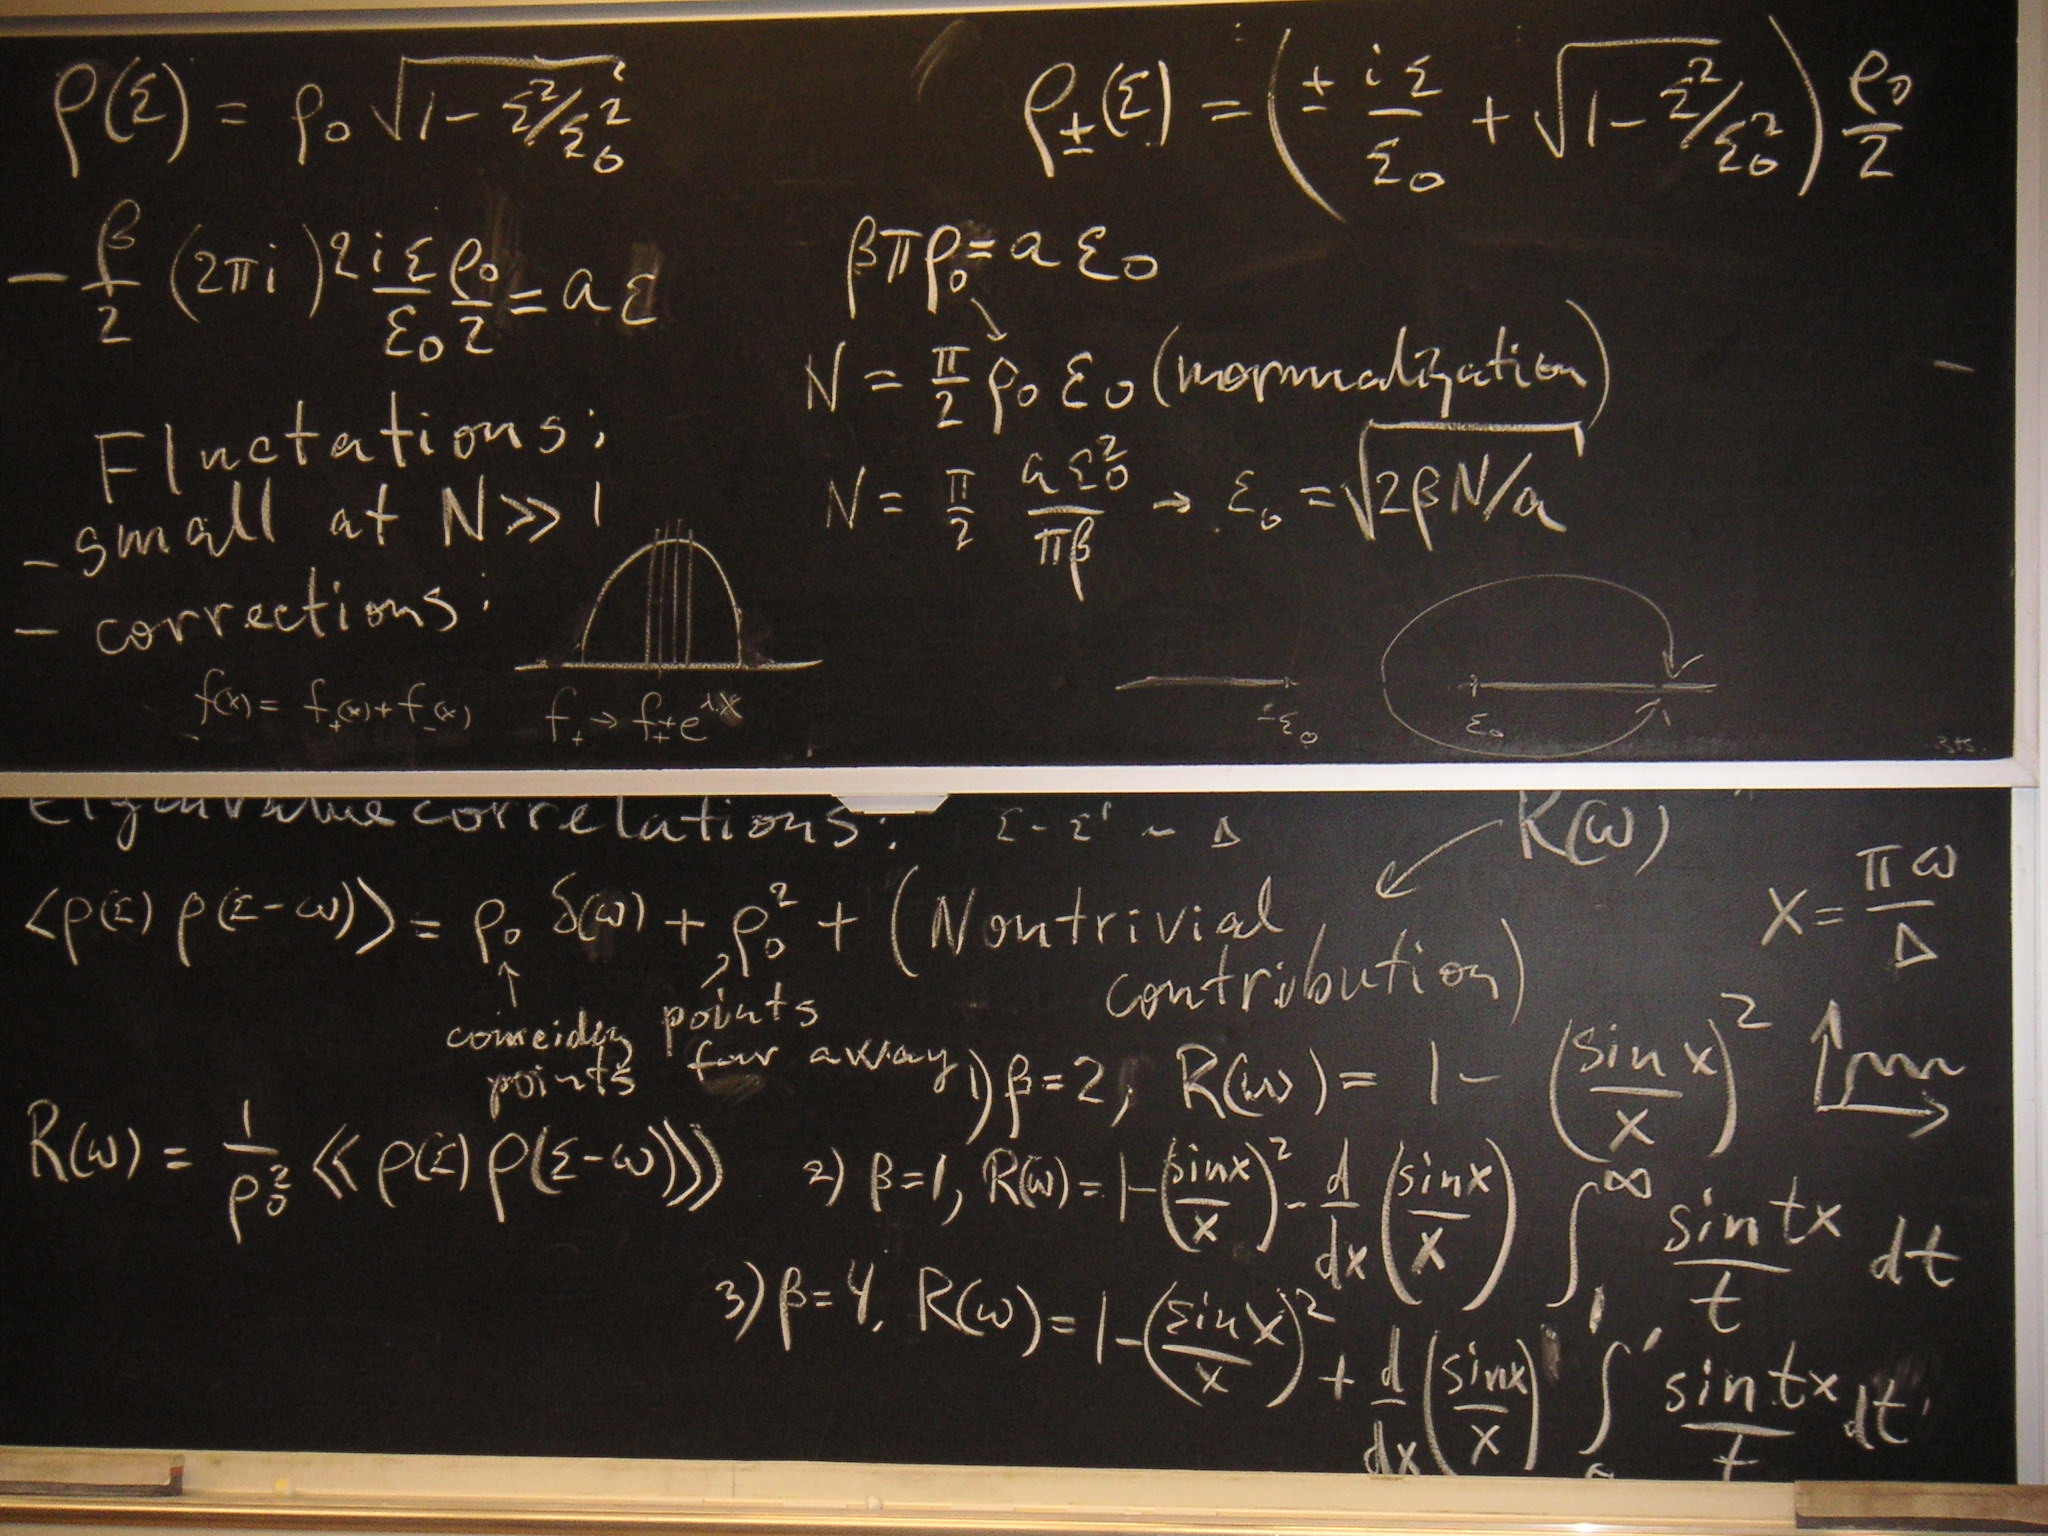 ρ(ε) = ρ₀ √(1 - ε²/ε₀²)
ρ±(ε) = (± iε/ε₀ + √(1 - ε²/ε₀²)) ρ₀/2
- β/2 (2πi)² iε/ε₀ ρ₀/2 = aε
βπρ₀ = aε₀
N = π/2 ρ₀ε₀ (normalization)
N = π/2 aε₀²/πβ → ε₀ = √(2βN/a)
Fluctations:
- small at N ≫ 1
- corrections:
f(x) = f₊(x) + f₋(x)
f± → f± e
-ε₀
ε₀
Eigenvalue correlations:
ε - ε' ~ Δ
R(ω)
⟨ρ(ε) ρ(ε-ω)⟩ = ρ₀ δ(ω) + ρ₀² + (Nontrivial
contribution)
x = πω/Δ
coinciding
points
points
far away
R(ω) = 1/ρ₀² ⟨⟨ρ(ε) ρ(ε-ω)⟩⟩
1) β=2, R(ω) = 1 - (sin x/x)²
2) β=1, R(ω) = 1 - (sin x/x)² - d/dx (sin x/x) ∫₁^∞ sin tx/t dt
3) β=4, R(ω) = 1 - (sin x/x)² + d/dx (sin x/x) ∫¹ sin tx/t dt